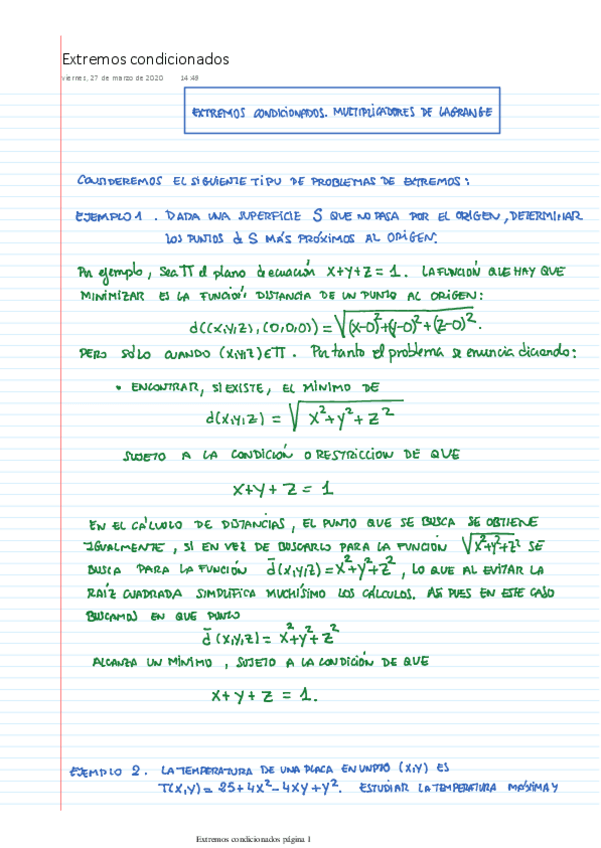 Extremos condicionados
viernes, 27 de marzo de 2020 14:49
EXTREMOS CONDICIONADOS. MULTIPLICADORES DE LAGRANGE
CONSIDEREMOS EL SIGUIENTE TIPO DE PROBLEMAS DE EXTREMOS:
EJEMPLO 1. DADA UNA SUPERFICIE S QUE NO PASA POR EL ORIGEN, DETERMINAR
LOS PUNTOS de S MÁS PRÓXIMOS AL ORIGEN.
Por ejemplo, Sea π el plano de ecuación x+y+z=1. LA FUNCIÓN QUE HAY QUE
MINIMIZAR ES LA FUNCIÓN DISTANCIA DE UN PUNTO AL ORIGEN:
d((x,y,z),(0,0,0)) = √((x-0)²+(y-0)²+(z-0)²).
PERO SÓLO CUANDO (x,y,z)∈π. Por tanto el problema se enuncia diciendo:
• ENCONTRAR, SI EXISTE, EL MÍNIMO DE
d(x,y,z) = √(x²+y²+z²)
SUJETO A LA CONDICIÓN O RESTRICCION DE QUE
x+y+z=1
EN EL CÁLCULO DE DISTANCIAS, EL PUNTO QUE SE BUSCA SE OBTIENE
IGUALMENTE, SI EN VEZ DE BUSCARLO PARA LA FUNCIÓN √(x²+y²+z²) SE
BUSCA PARA LA FUNCIÓN d̄(x,y,z)=x²+y²+z², LO QUE AL EVITAR LA
RAÍZ CUADRADA SIMPLIFICA MUCHÍSIMO LOS CÁLCULOS. ASÍ PUES EN ESTE CASO
BUSCAMOS EN QUE PUNTO
d̄(x,y,z)= x²+y²+z²
ALCANZA UN MÍNIMO, SUJETO A LA CONDICIÓN DE QUE
x+y+z=1.
EJEMPLO 2. LA TEMPERATURA DE UNA PLACA EN UN PTO (x,y) ES
T(x,y)= 25+4x²-4xy+y². ESTUDIAR LA TEMPERATURA MÁXIMA Y
Extremos condicionados página 1